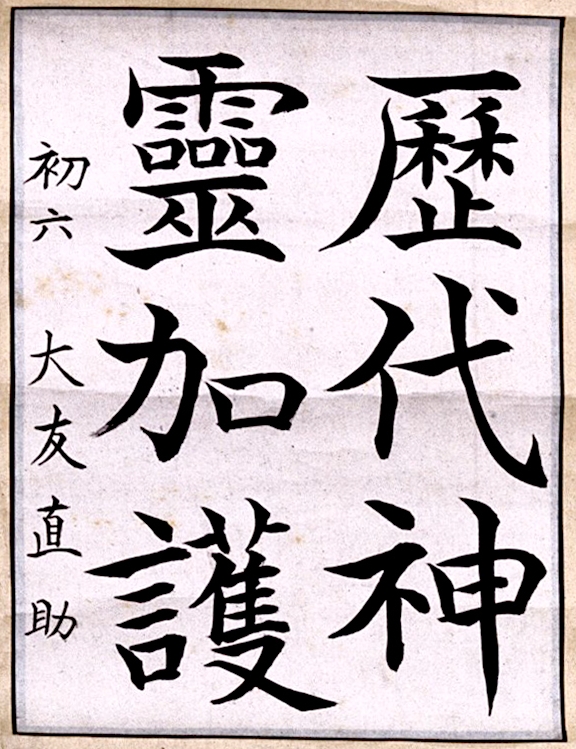 歷代神
靈加護
初六 大友直助